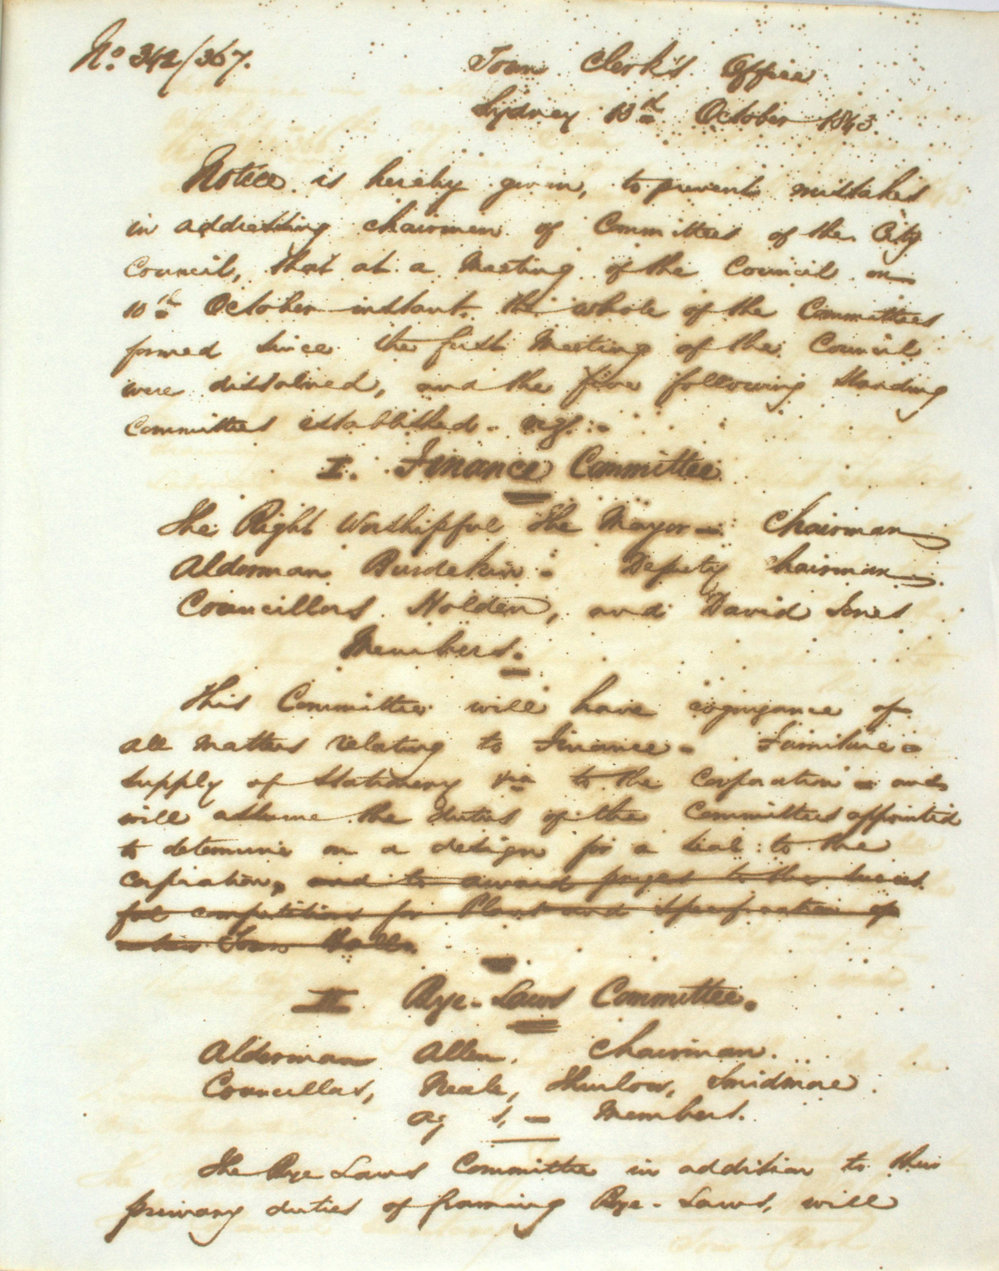 No. 342/367.
Town Clerk's Office
Sydney 13th October 1843.
Notice is hereby given, to prevent mistakes
in addressing chairmen of Committees of the City
Council, that at a Meeting of the Council on
10th October instant, the whole of the Committees
formed since the first Meeting of the Council
were dissolved, and the five following Standing
Committees established - viz. : -
I. Finance Committee
The Right Worshipful The Mayor - Chairman
Alderman Burdekin - Deputy Chairman
Councillors Holden, and David Jones
Members. -
This Committee will have cognizance of
all matters relating to Finance - Furniture -
supply of stationery &ca to the Corporation - and
will assume the duties of the Committees appointed
to determine on a design for a seal to the
Corporation, and to award prizes to the success
ful competitors for Plans and specification of
Town Hall.
II Bye-Laws Committee.
Alderman Allen, Chairman.
Councillors, Neale, Thurlow, Smidmore
- Members.
The Bye Laws Committee in addition to their
primary duties of framing Bye-Laws, will